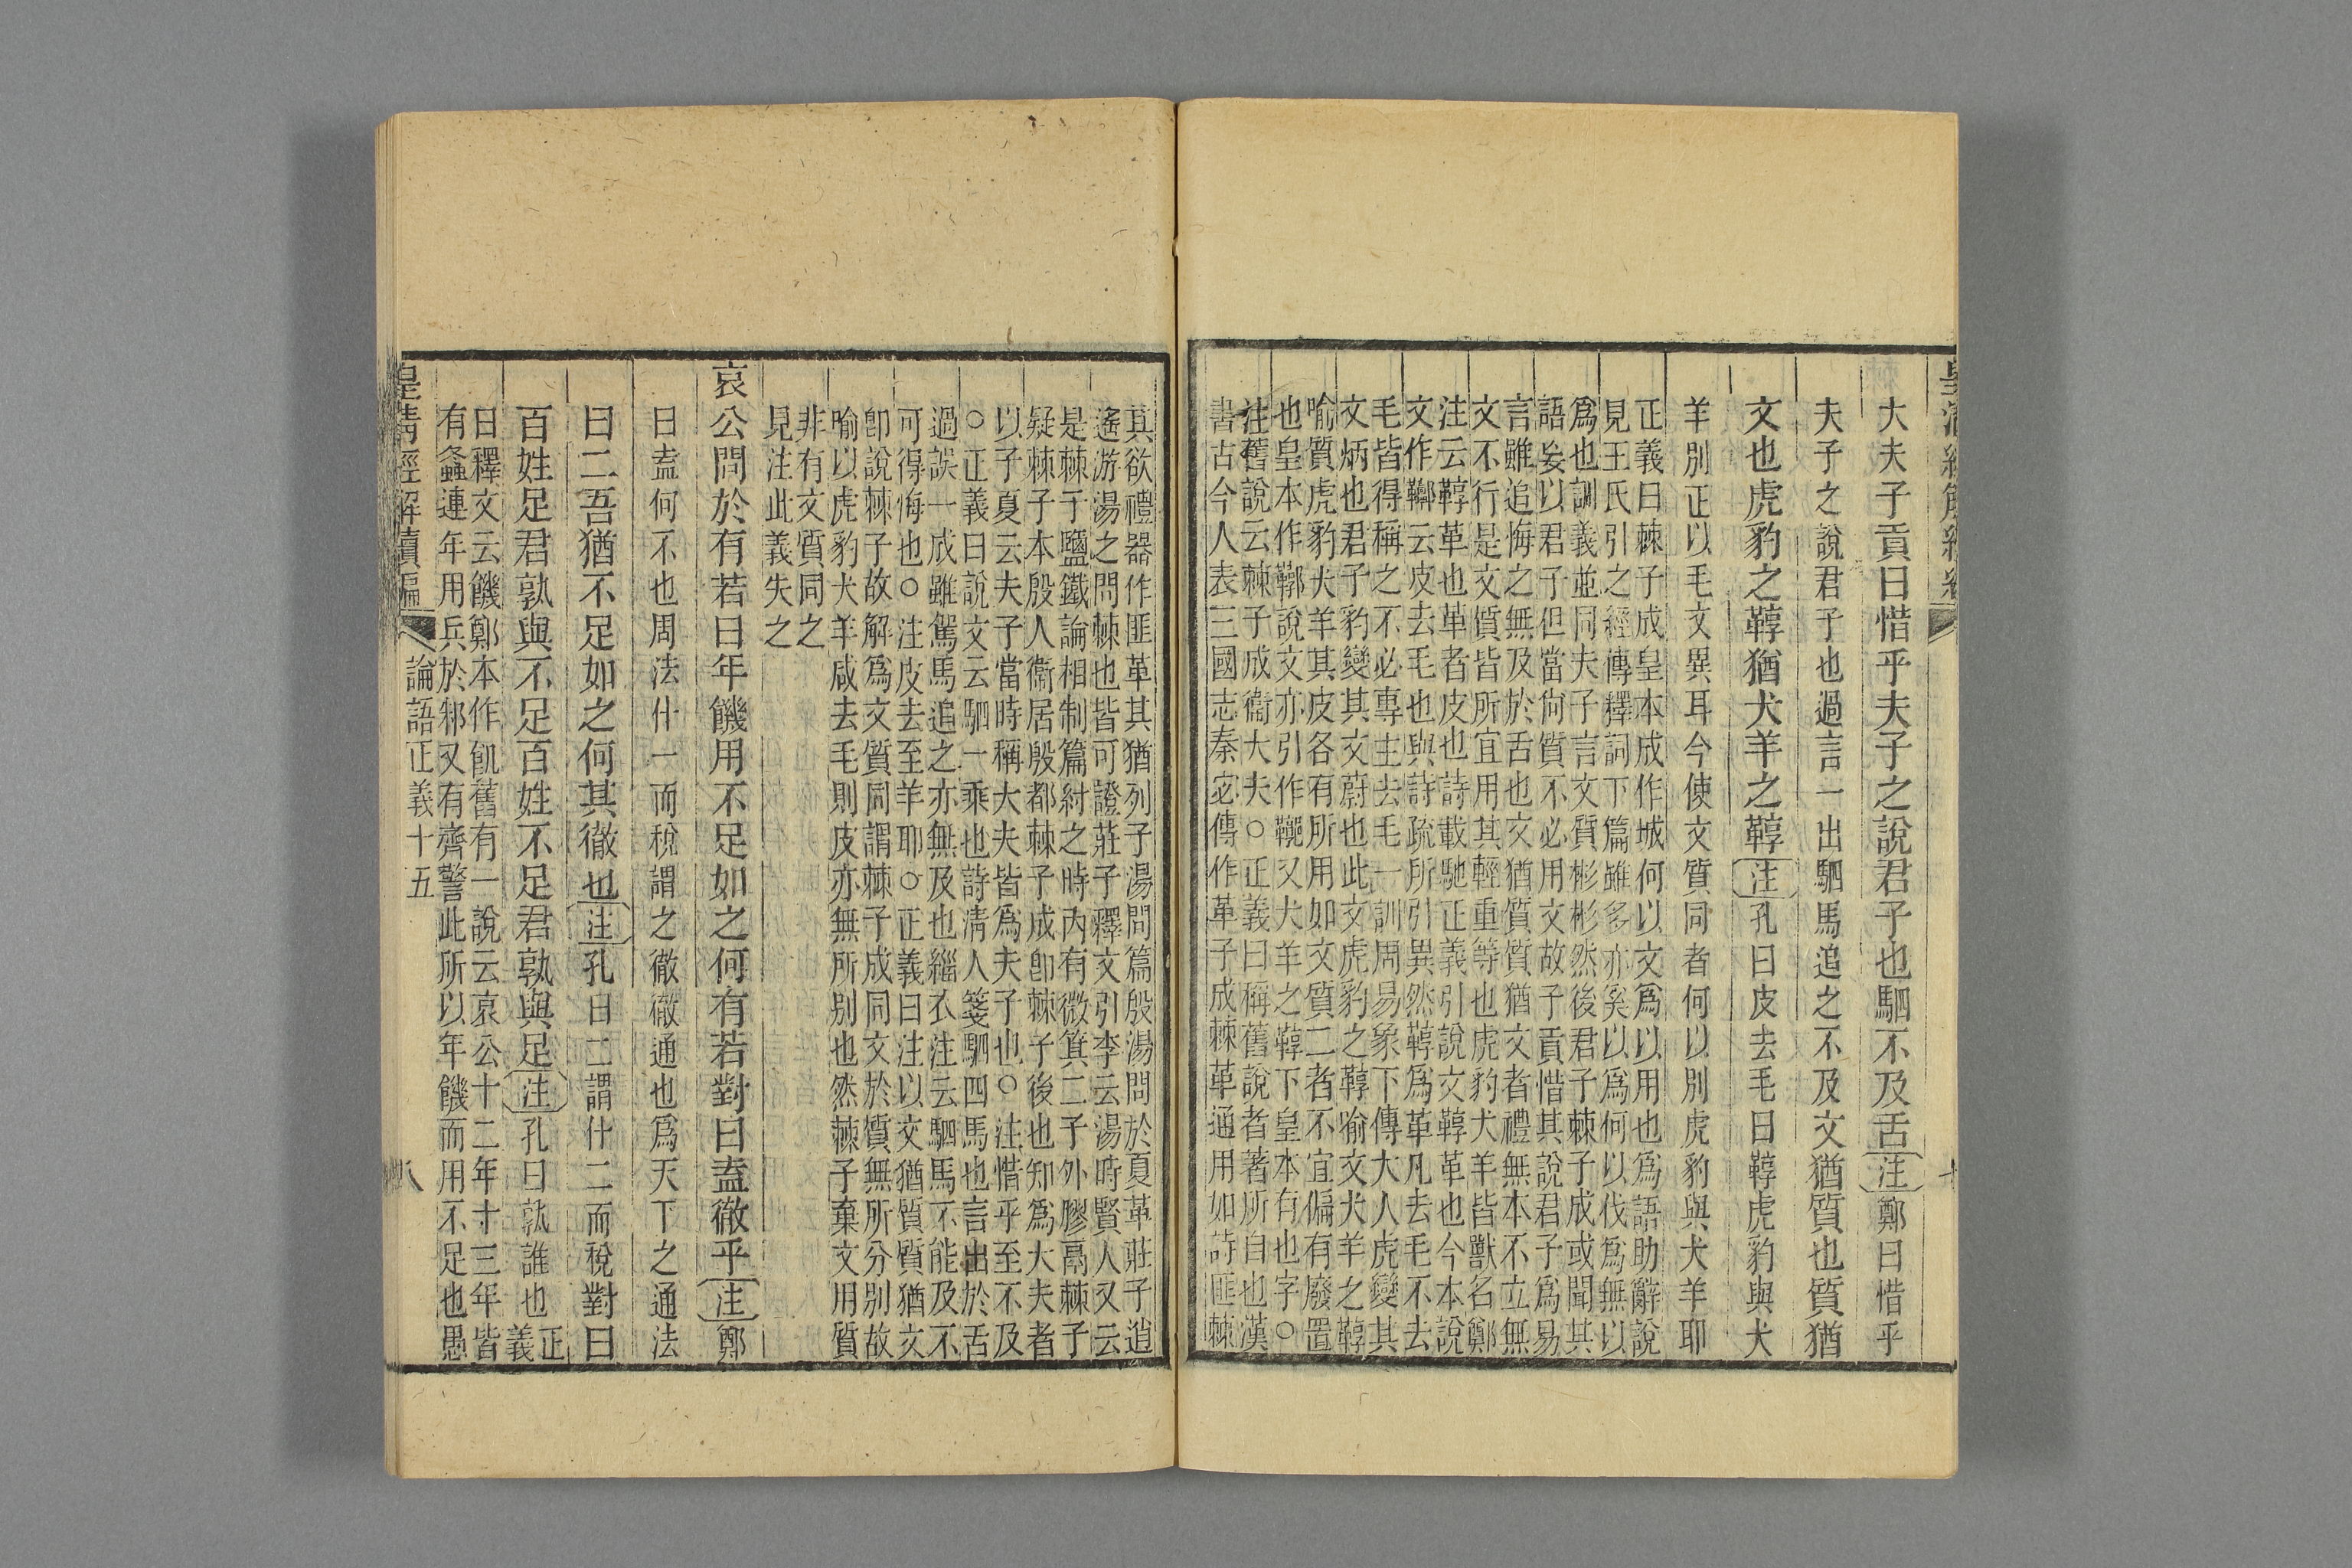 大夫子貢曰惜乎夫子之說君子也駟不及舌注鄭曰惜乎
夫子之說君子也過言一出駟馬追之不及文猶質也質猶
文也虎豹之鞟猶犬羊之鞟注孔曰皮去毛曰鞟虎豹與犬
羊別正以毛文異耳今使文質同者何以別虎豹與犬羊耶
正義曰棘子成皇本成作城何以文爲以用也爲語助辭說
見王氏引之經傳釋詞下篇雖多亦奚以爲何以伐爲無以
爲也訓義並同夫子言文質彬彬然後君子棘子成或聞其
語妄以君子但當尙質不必用文故子貢惜其說君子爲易
言雖追悔之無及於舌也文猶質質猶文者禮無本不立無
文不行是文質皆所宜用其輕重等也虎豹犬羊皆獸名鄭
注云鞟革也革者皮也詩載馳正義引說文鞟革也今本說
文作鞹云皮去毛也與詩疏所引異然鞟爲革凡去毛不去
毛皆得稱之不必專主去毛一訓周易象下傳大人虎變其
文炳也君子豹變其文蔚也此文虎豹之鞟喻文犬羊之鞟
喻質虎豹犬羊其皮各有所用如文質二者不宜偏有廢置
也皇本作鞹說文亦引作鞹又犬羊之鞟下皇本有也字○
注舊說云棘子成衞大夫○正義曰稱舊說者著所自也漢
書古今人表三國志秦宓傳作革子成棘革通用如詩匪棘
其欲禮器作匪革其猶列子湯問篇殷湯問於夏革莊子逍
遙游湯之問棘也皆可證莊子釋文引李云湯時賢人又云
是棘子鹽鐵論相制篇紂之時內有微箕二子外膠鬲棘子
疑棘子本殷人衞居殷都棘子成卽棘子後也知爲大夫者
以子夏云夫子當時稱大夫皆爲夫子也○注惜乎至不及
○正義曰說文云駟一乘也詩淸人箋駟四馬也言出於舌
過誤一成雖駕馬追之亦無及也緇衣注云駟馬不能及不
可得悔也○注皮去至羊耶○正義曰注以文猶質質猶文
卽說棘子故解爲文質同謂棘子成同文於質無所分別故
喻以虎豹犬羊咸去毛則皮亦無所別也然棘子棄文用質
非有文質同之
見注此義失之
哀公問於有若曰年饑用不足如之何有若對曰盍徹乎注鄭
曰盍何不也周法什一而稅謂之徹徹通也爲天下之通法
曰二吾猶不足如之何其徹也注孔曰二謂什二而稅對曰
百姓足君孰與不足百姓不足君孰與足注孔曰孰誰也正義
曰釋文云饑鄭本作飢舊有一說云哀公十二年十三年皆
有螽連年用兵於邾又有齊警此所以年饑而用不足也愚
皇淸經解續編 論語正義十五 八